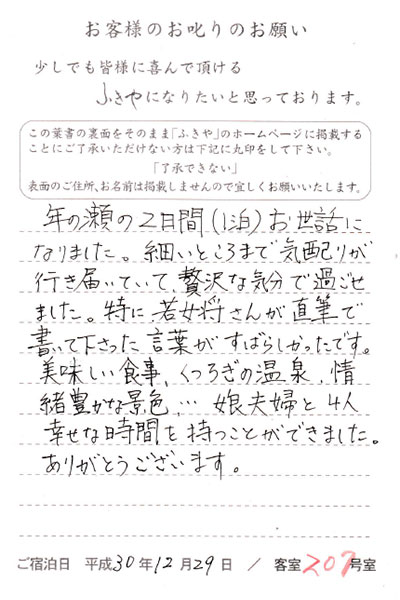 お客様のお叱りのお願い
少しでも皆様に喜んで頂ける
ふきやになりたいと思っております。
この葉書の裏面をそのまま「ふきや」のホームページに掲載する
ことにご了承いただけない方は下記に丸印をして下さい。
「了承できない」
表面のご住所、お名前は掲載しませんので宜しくお願いいたします。
年の瀬の2日間(1泊)お世話に
なりました。細いところまで気配りが
行き届いていて、贅沢な気分で過ごせ
ました。特に若女将さんが直筆で
書いて下さった言葉がすばらしかったです。
美味しい食事、くつろぎの温泉、情
緒豊かな景色、… 娘夫婦と4人
幸せな時間を持つことができました。
ありがとうございます。
ご宿泊日 平成30年12月29日 / 客室207号室